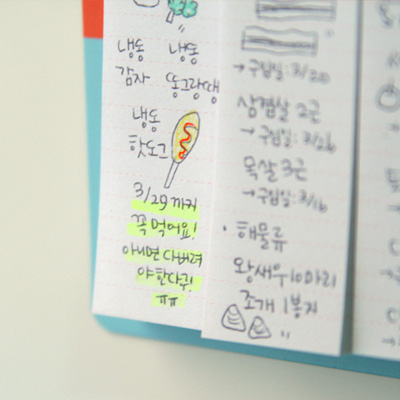 냉동 냉동
감자 똥그랑땡
냉동
핫도그
3/29까지
꼭 먹어요!
아니면 다 버려
야 한다구!
ㅠㅠ
→ 구입일: 3/20
삼겹살 2근
→ 구입일: 3/26
목살 3근
→ 구입일: 3/16
· 해물류
왕새우 10마리
조개 1봉지